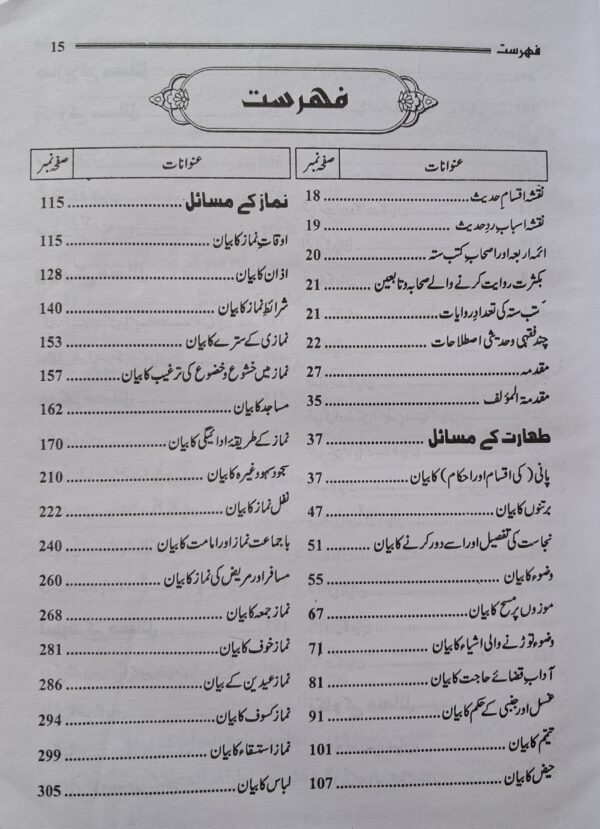 فہرست 15
فہرست
عنوانات صفحہ نمبر
نقشہ اقسام حدیث 18
نقشہ اسباب رد حدیث 19
ائمہ اربعہ اور اصحاب کتب ستہ 20
بکثرت روایت کرنے والے صحابہ و تابعین 21
کتب ستہ کی تعداد روایات 21
چند فقہی و حدیثی اصطلاحات 22
مقدمہ 27
مقدمۃ المؤلف 35
طہارت کے مسائل 37
پانی (کی اقسام اور احکام) کا بیان 37
برتنوں کا بیان 47
نجاست کی تفصیل اور اسے دور کرنے کا بیان 51
وضوء کا بیان 55
موزوں پر مسح کا بیان 67
وضوء توڑنے والی اشیاء کا بیان 71
آداب قضائے حاجت کا بیان 81
غسل اور جنبی کے حکم کا بیان 91
تیمم کا بیان 101
حیض کا بیان 107
عنوانات صفحہ نمبر
نماز کے مسائل 115
اوقات نماز کا بیان 115
اذان کا بیان 128
شرائط نماز کا بیان 140
نمازی کے سترے کا بیان 153
نماز میں خشوع و خضوع کی ترغیب کا بیان 157
مساجد کا بیان 162
نماز کے طریقۂ ادائیگی کا بیان 170
سجود سہو وغیرہ کا بیان 210
نفل نماز کا بیان 222
با جماعت نماز اور امامت کا بیان 240
مسافر اور مریض کی نماز کا بیان 260
نماز جمعہ کا بیان 268
نماز خوف کا بیان 281
نماز عیدین کے بیان 286
نماز کسوف کا بیان 294
نماز استسقاء کا بیان 299
لباس کا بیان 305